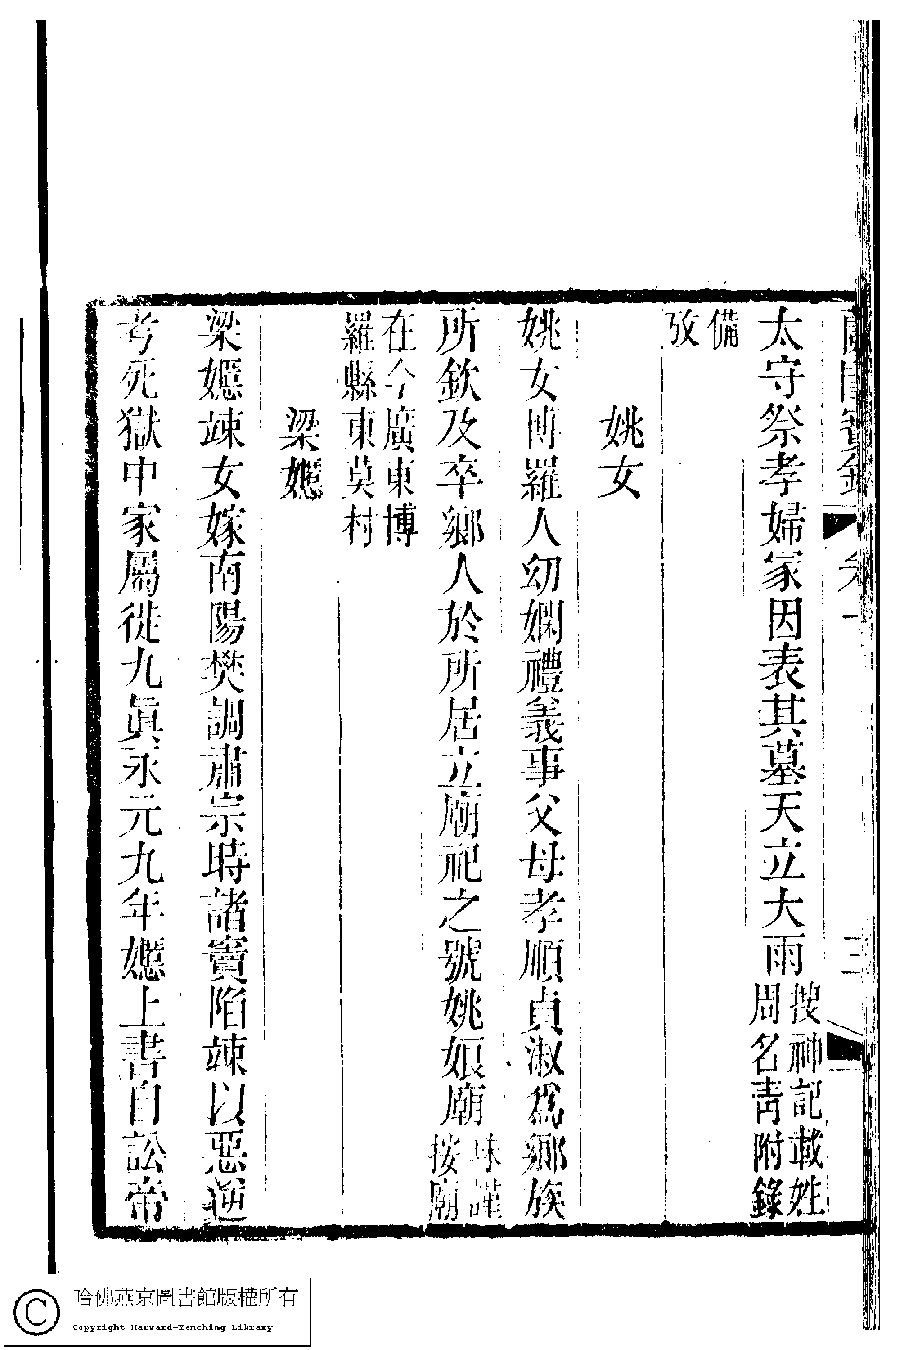 蘭閨寶錄 卷一 三
太守祭孝婦冢因表其墓天立大雨
搜神記載姓
周名青附錄
備
攷
姚女
姚女博羅人幼嫻禮義事父母孝順貞淑爲鄉族
所欽及卒鄉人於所居立廟祀之號姚娘廟
珠謹
按廟
在今廣東博
羅縣東莫村
梁嫕
梁嫕竦女嫁南陽樊調肅宗時諸竇陷竦以惡逆
考死獄中家屬徙九眞永元九年嫕上書自訟帝
哈佛燕京圖書館版權所有
Copyright Harvard-Yenching Library